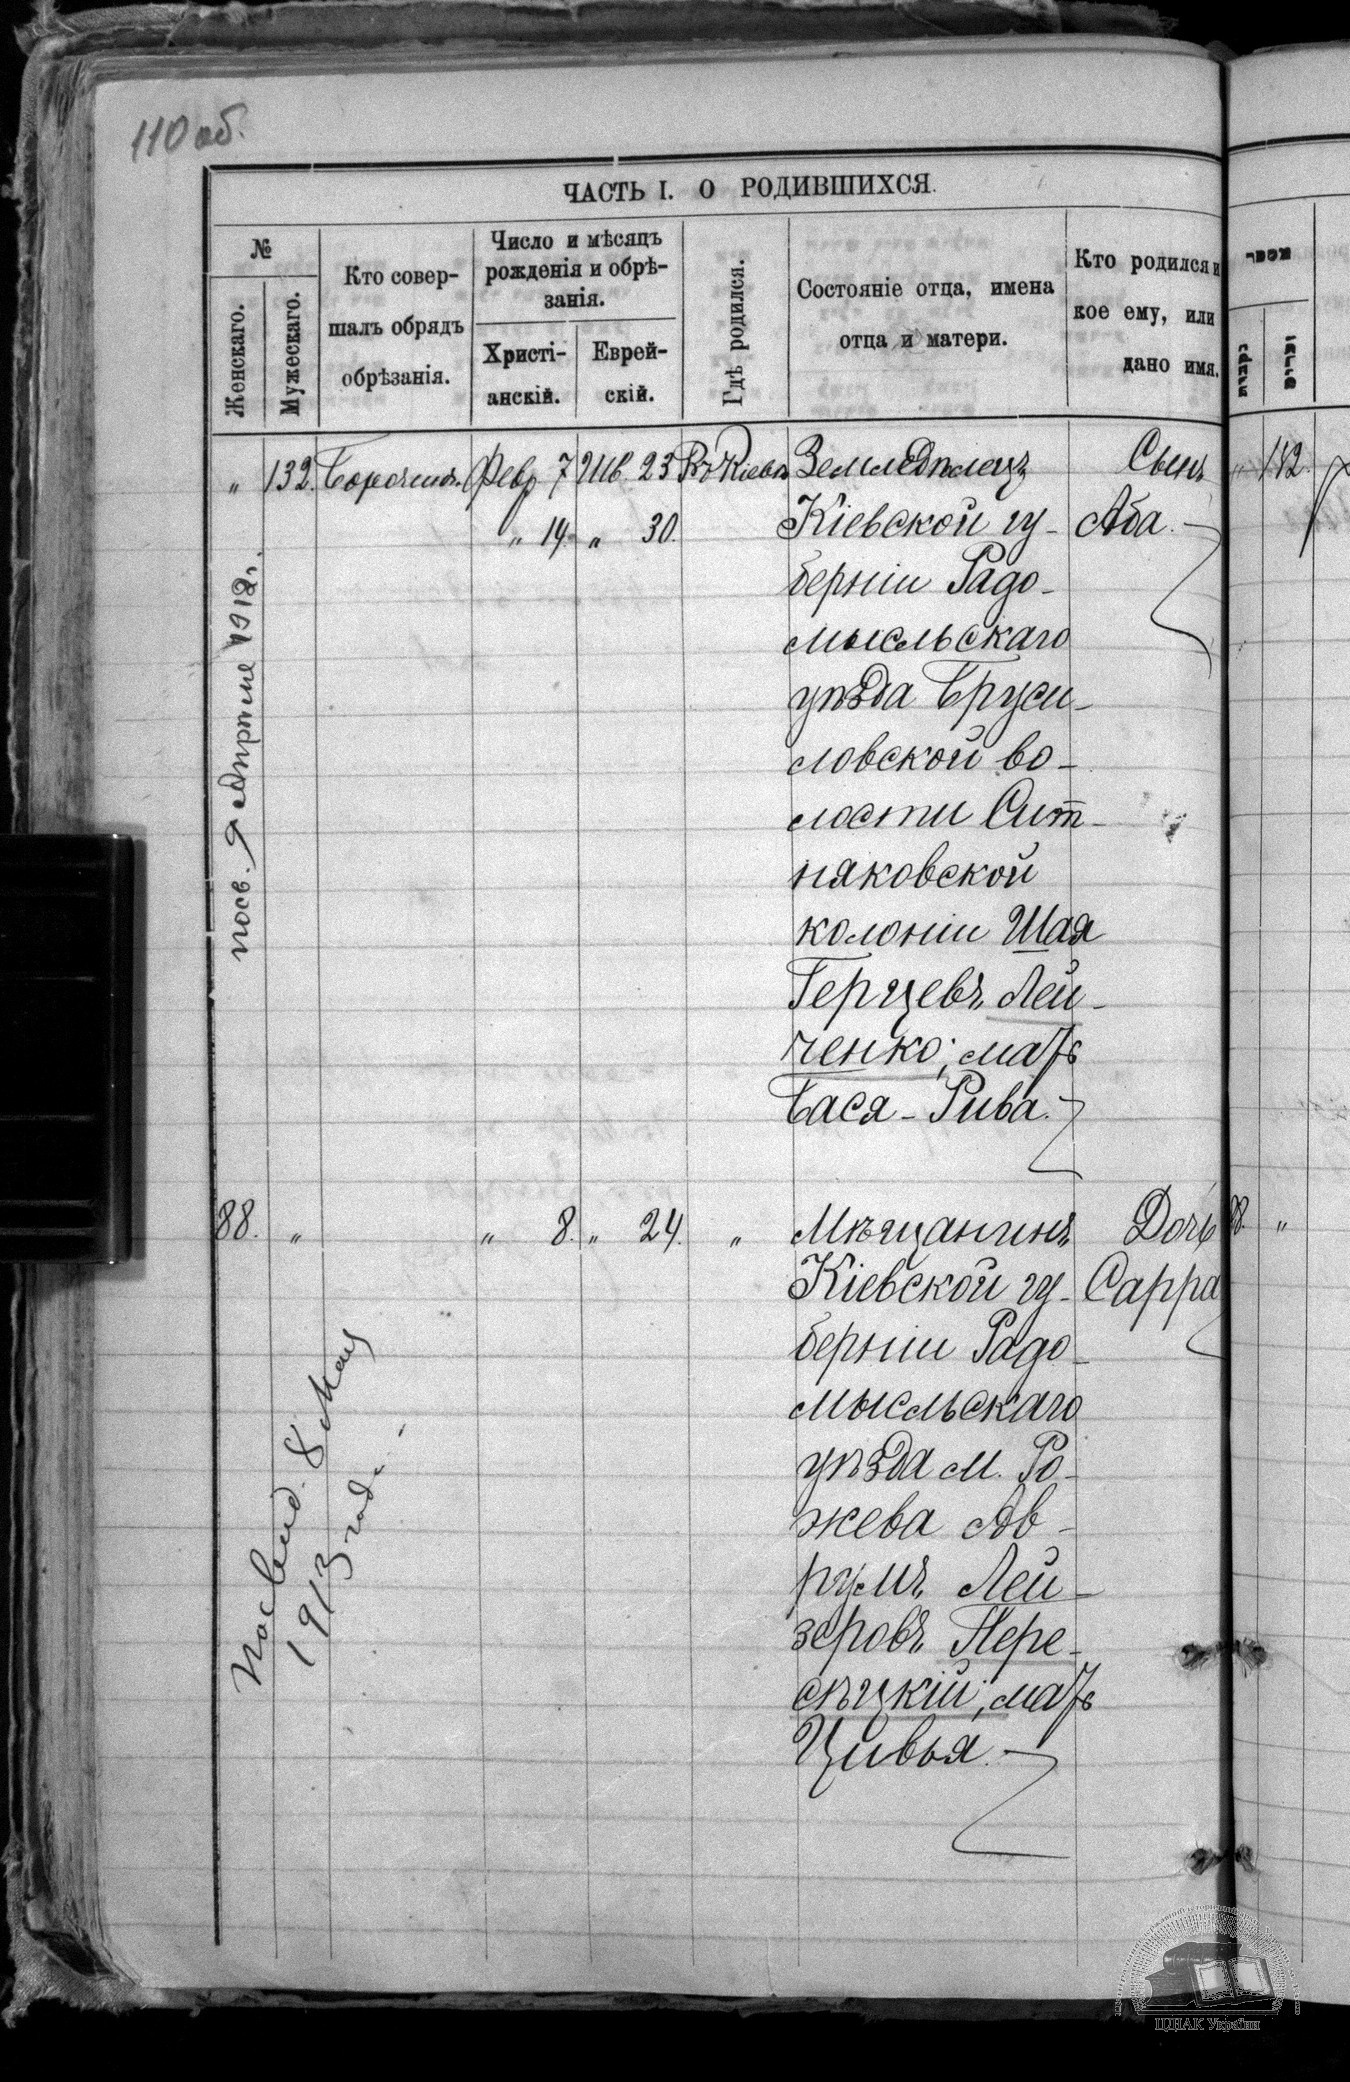 110 об.
ЧАСТЬ I. О РОДИВШИХСЯ.
№
Женскаго.
Мужескаго.
Кто совер-
шалъ обрядъ
обрѣзанія.
Число и мѣсяцъ
рожденія и обрѣ-
занія.
Христі-
анскій.
Еврей-
скій.
Гдѣ родился.
Состояніе отца, имена
отца и матери.
Кто родился и
кое ему, или
дано имя.
מספר
נקבות
זכרים
„ 132. Февр 7 Шв. 23 Въ Кіевѣ Земледѣлецъ Сынъ
„ 14. „ 30. Кіевской гу- Аба.
берніи Радо-
мысльскаго
уѣзда Бруси-
ловской во-
лости Сит-
няковской
колоніи Шая
Герцевъ Лей-
ченко; мать
Бася-Рива.
посв. 9 Апрѣля 1912 г.
88. „ „ 8. „ 24. „ Мѣщанинъ Дочь
Кіевской гу- Сарра
берніи Радо-
мысльскаго
уѣзда м. Ро-
жева Ав-
румъ Лей-
зеровъ Пере-
сѣцкій; мать
Цивья.
Посвид. 8 Мая
1913 года
„ 132.
88. „
ЦДІАК України